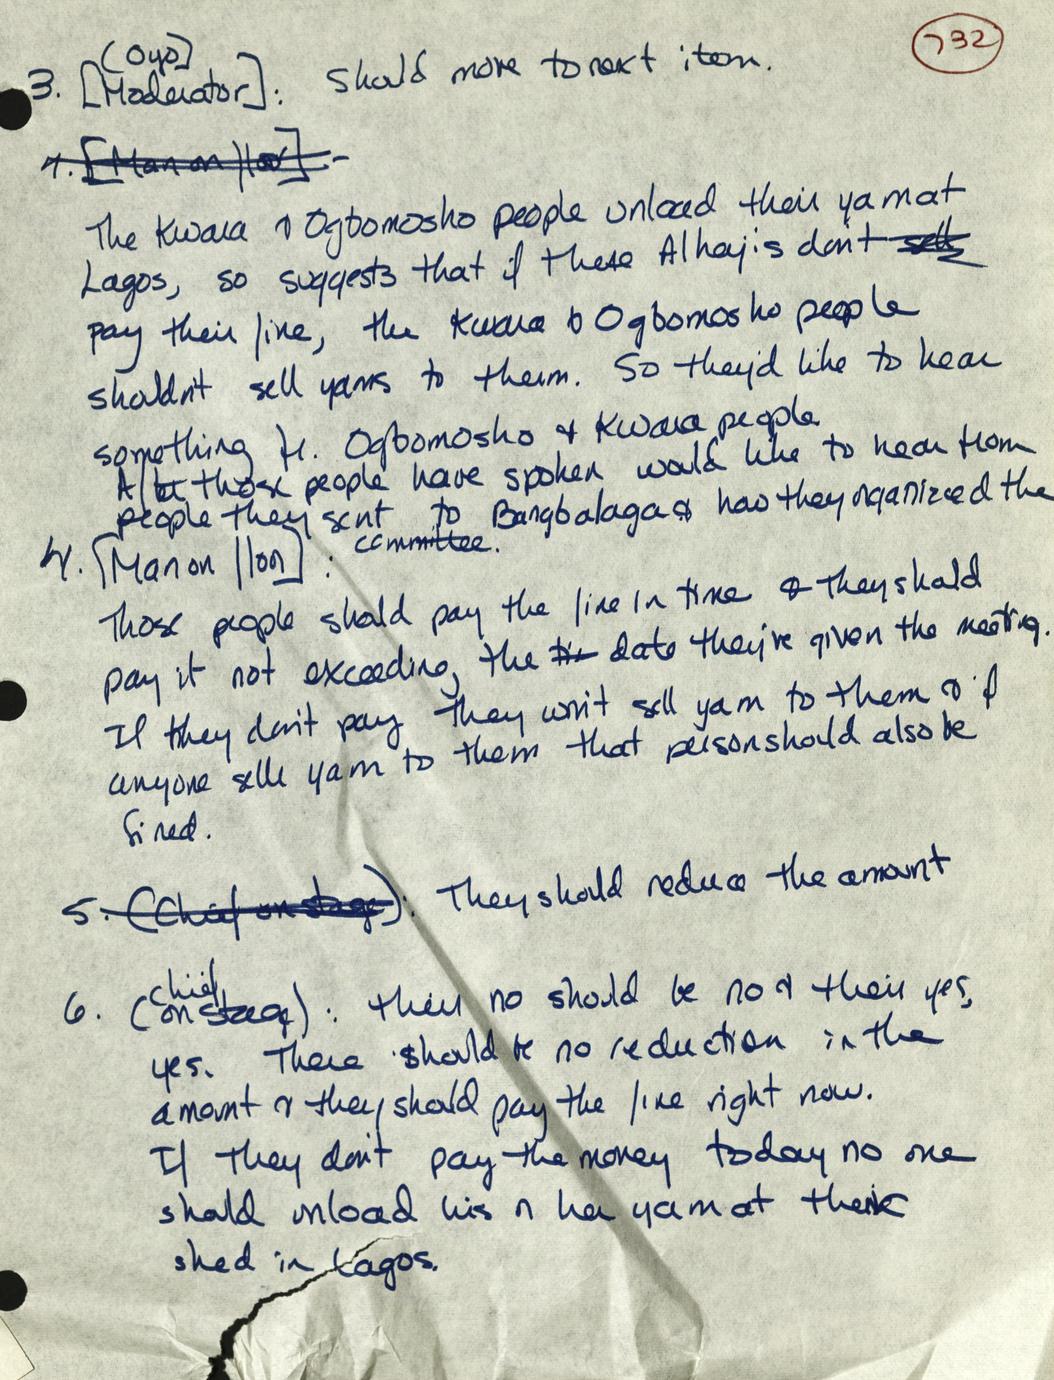 732
(Oyo)
3. [Moderator]: Should move to next item.
4. [Man on floor] -
The Kwara & Ogbomosho people unload their yam at
Lagos, so suggests that if these Alhajis don't sell
pay their fine, the Kwara & Ogbomosho people
shouldn't sell yams to them. So they'd like to hear
something fr. Ogbomosho & Kwara people.
After those people have spoken would like to hear from
people they sent to Bangbalaga & how they organized the
committee.
4. [Man on floor]:
Those people should pay the fine in time & they should
pay it not exceeding the date they've given the meeting.
If they don't pay they won't sell yam to them & if
anyone sells yam to them that person should also be
fined.
5. (Chief on stage): They should reduce the amount
chief
6. (on stage): their no should be no & their yes,
yes. There should be no reduction in the
amount & they should pay the fine right now.
If they don't pay the money today no one
should unload his or her yam at their
shed in Lagos.